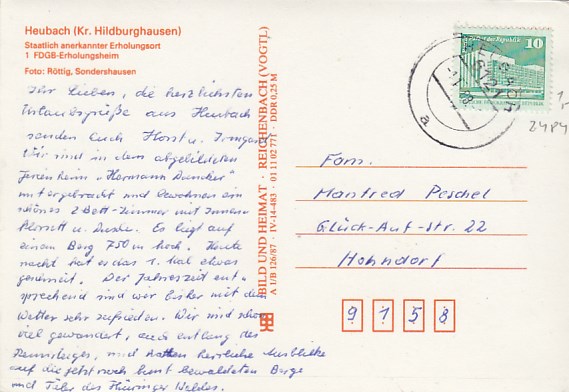 Heubach (Kr. Hildburghausen)
Staatlich anerkannter Erholungsort
1 FDGB-Erholungsheim
Foto: Röttig, Sondershausen
Ihr Lieben, die herzlichsten
Urlaubsgrüße aus Heubach
senden Euch Horst u. Irmgard
Wir sind in dem abgebildeten
Ferienheim "Hermann Duncker"
untergebracht und bewohnen ein
schönes 2 Bett-Zimmer mit Innen-
klosett u. Dusche. Es liegt auf
einem Berg 750 m hoch. Heute
nacht hat es das 1. mal etwas
geschneit. Der Jahreszeit ent-
sprechend sind wir bisher mit dem
Wetter sehr zufrieden. Wir sind schon
viel gewandert, auch entlang des
Rennsteiges, und hatten herrliche Ausblicke
auf die jetzt noch bunt bewaldeten Berge
und Täler des Thüringer Waldes.
BILD UND HEIMAT · REICHENBACH (VOGTL)
A 1/B 126/87 · IV-14-483 · 01 11 02 771 · DDR 0,25 M
10
6121
a
1,-
2484
Fam.
Manfred Peschel
Glück-Auf-Str. 22
Hohndorf
9158